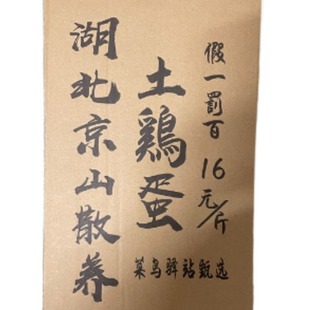 湖北京山散养
土鷄蛋
假一罰百
16元/斤
菜鸟驿站甄选